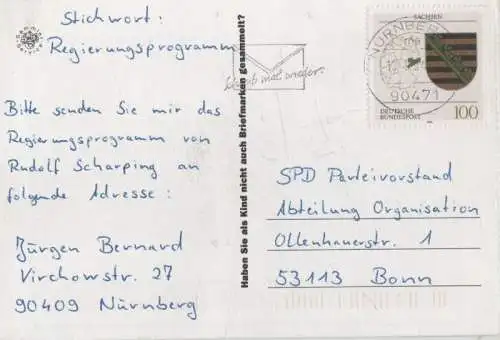 Stichwort:
Regierungsprogramm
Bitte senden Sie mir das
Regierungsprogramm von
Rudolf Scharping an
folgende Adresse:
Jürgen Bernard
Virchowstr. 27
90409 Nürnberg
Haben Sie als Kind nicht auch Briefmarken gesammelt?
mal wieder.
NÜRNBERG
90471
SACHSEN
DEUTSCHE
BUNDESPOST
100
SPD Parteivorstand
Abteilung Organisation
Ollenhauerstr. 1
53113 Bonn